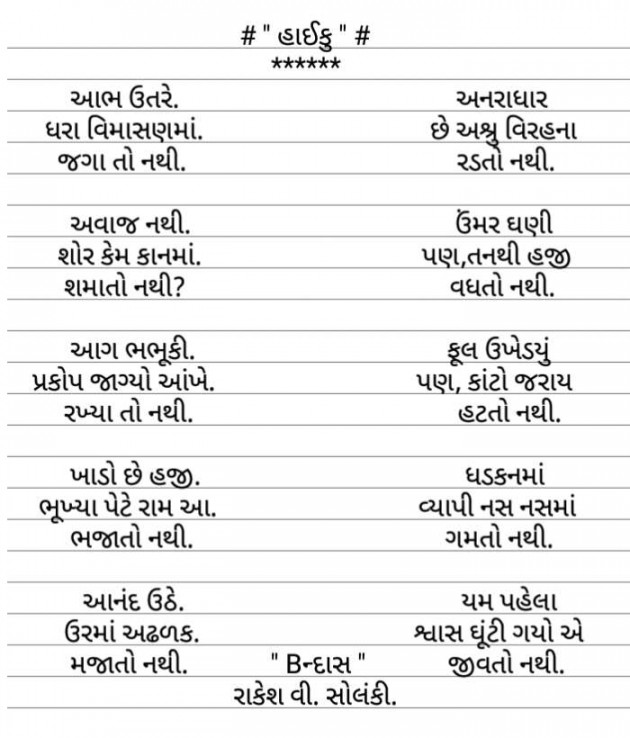 # " હાઈકુ " #
******
આભ ઉતરે.
ધરા વિમાસણમાં.
જગા તો નથી.
અવાજ નથી.
શોર કેમ કાનમાં.
શમાતો નથી?
આગ ભભૂકી.
પ્રકોપ જાગ્યો આંખે.
રખ્યા તો નથી.
ખાડો છે હજી.
ભૂખ્યા પેટે રામ આ.
ભજાતો નથી.
આનંદ ઉઠે.
ઉરમાં અઢળક.
મજાતો નથી.
અનરાધાર
છે અશ્રુ વિરહના
રડતો નથી.
ઉંમર ઘણી
પણ,તનથી હજી
વધતો નથી.
ફૂલ ઉખેડયું
પણ, કાંટો જરાય
હટતો નથી.
ધડકનમાં
વ્યાપી નસ નસમાં
ગમતો નથી.
યમ પહેલા
શ્વાસ ઘૂંટી ગયો એ
જીવતો નથી.
" Bન્દાસ "
રાકેશ વી. સોલંકી.